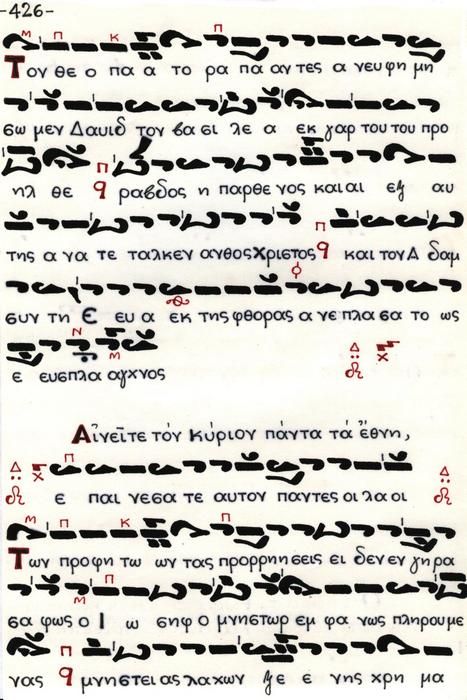 -426-
Τον θε ο πα α το ρα πα αν τες α νευ φη μη
σω μεν Δαυιδ τον βα σι λε α εκ γαρ του του προ
ηλ θε ραβδος η παρθε νος και αι εξ αυ
της α να τε ταλκεν ανθος Χριστος και τον Α δαμ
συν τη Ε ευ α εκ της φθορας α νε πλα σα το ως
ε ευσπλα αγχνος
Αἰνεῖτε τόν Κύριον πάντα τά ἔθνη,
ε παι νεσα τε αυτον παντες οι λα οι
Των προφη τω ων τας προρρηησεις ει δεν εν γη ρα
σα φως ο Ι ω σηφ ο μνηστωρ εμ φα νως πληρου με
νας μνηστει ας λαχων ξε ε νης χρη μα